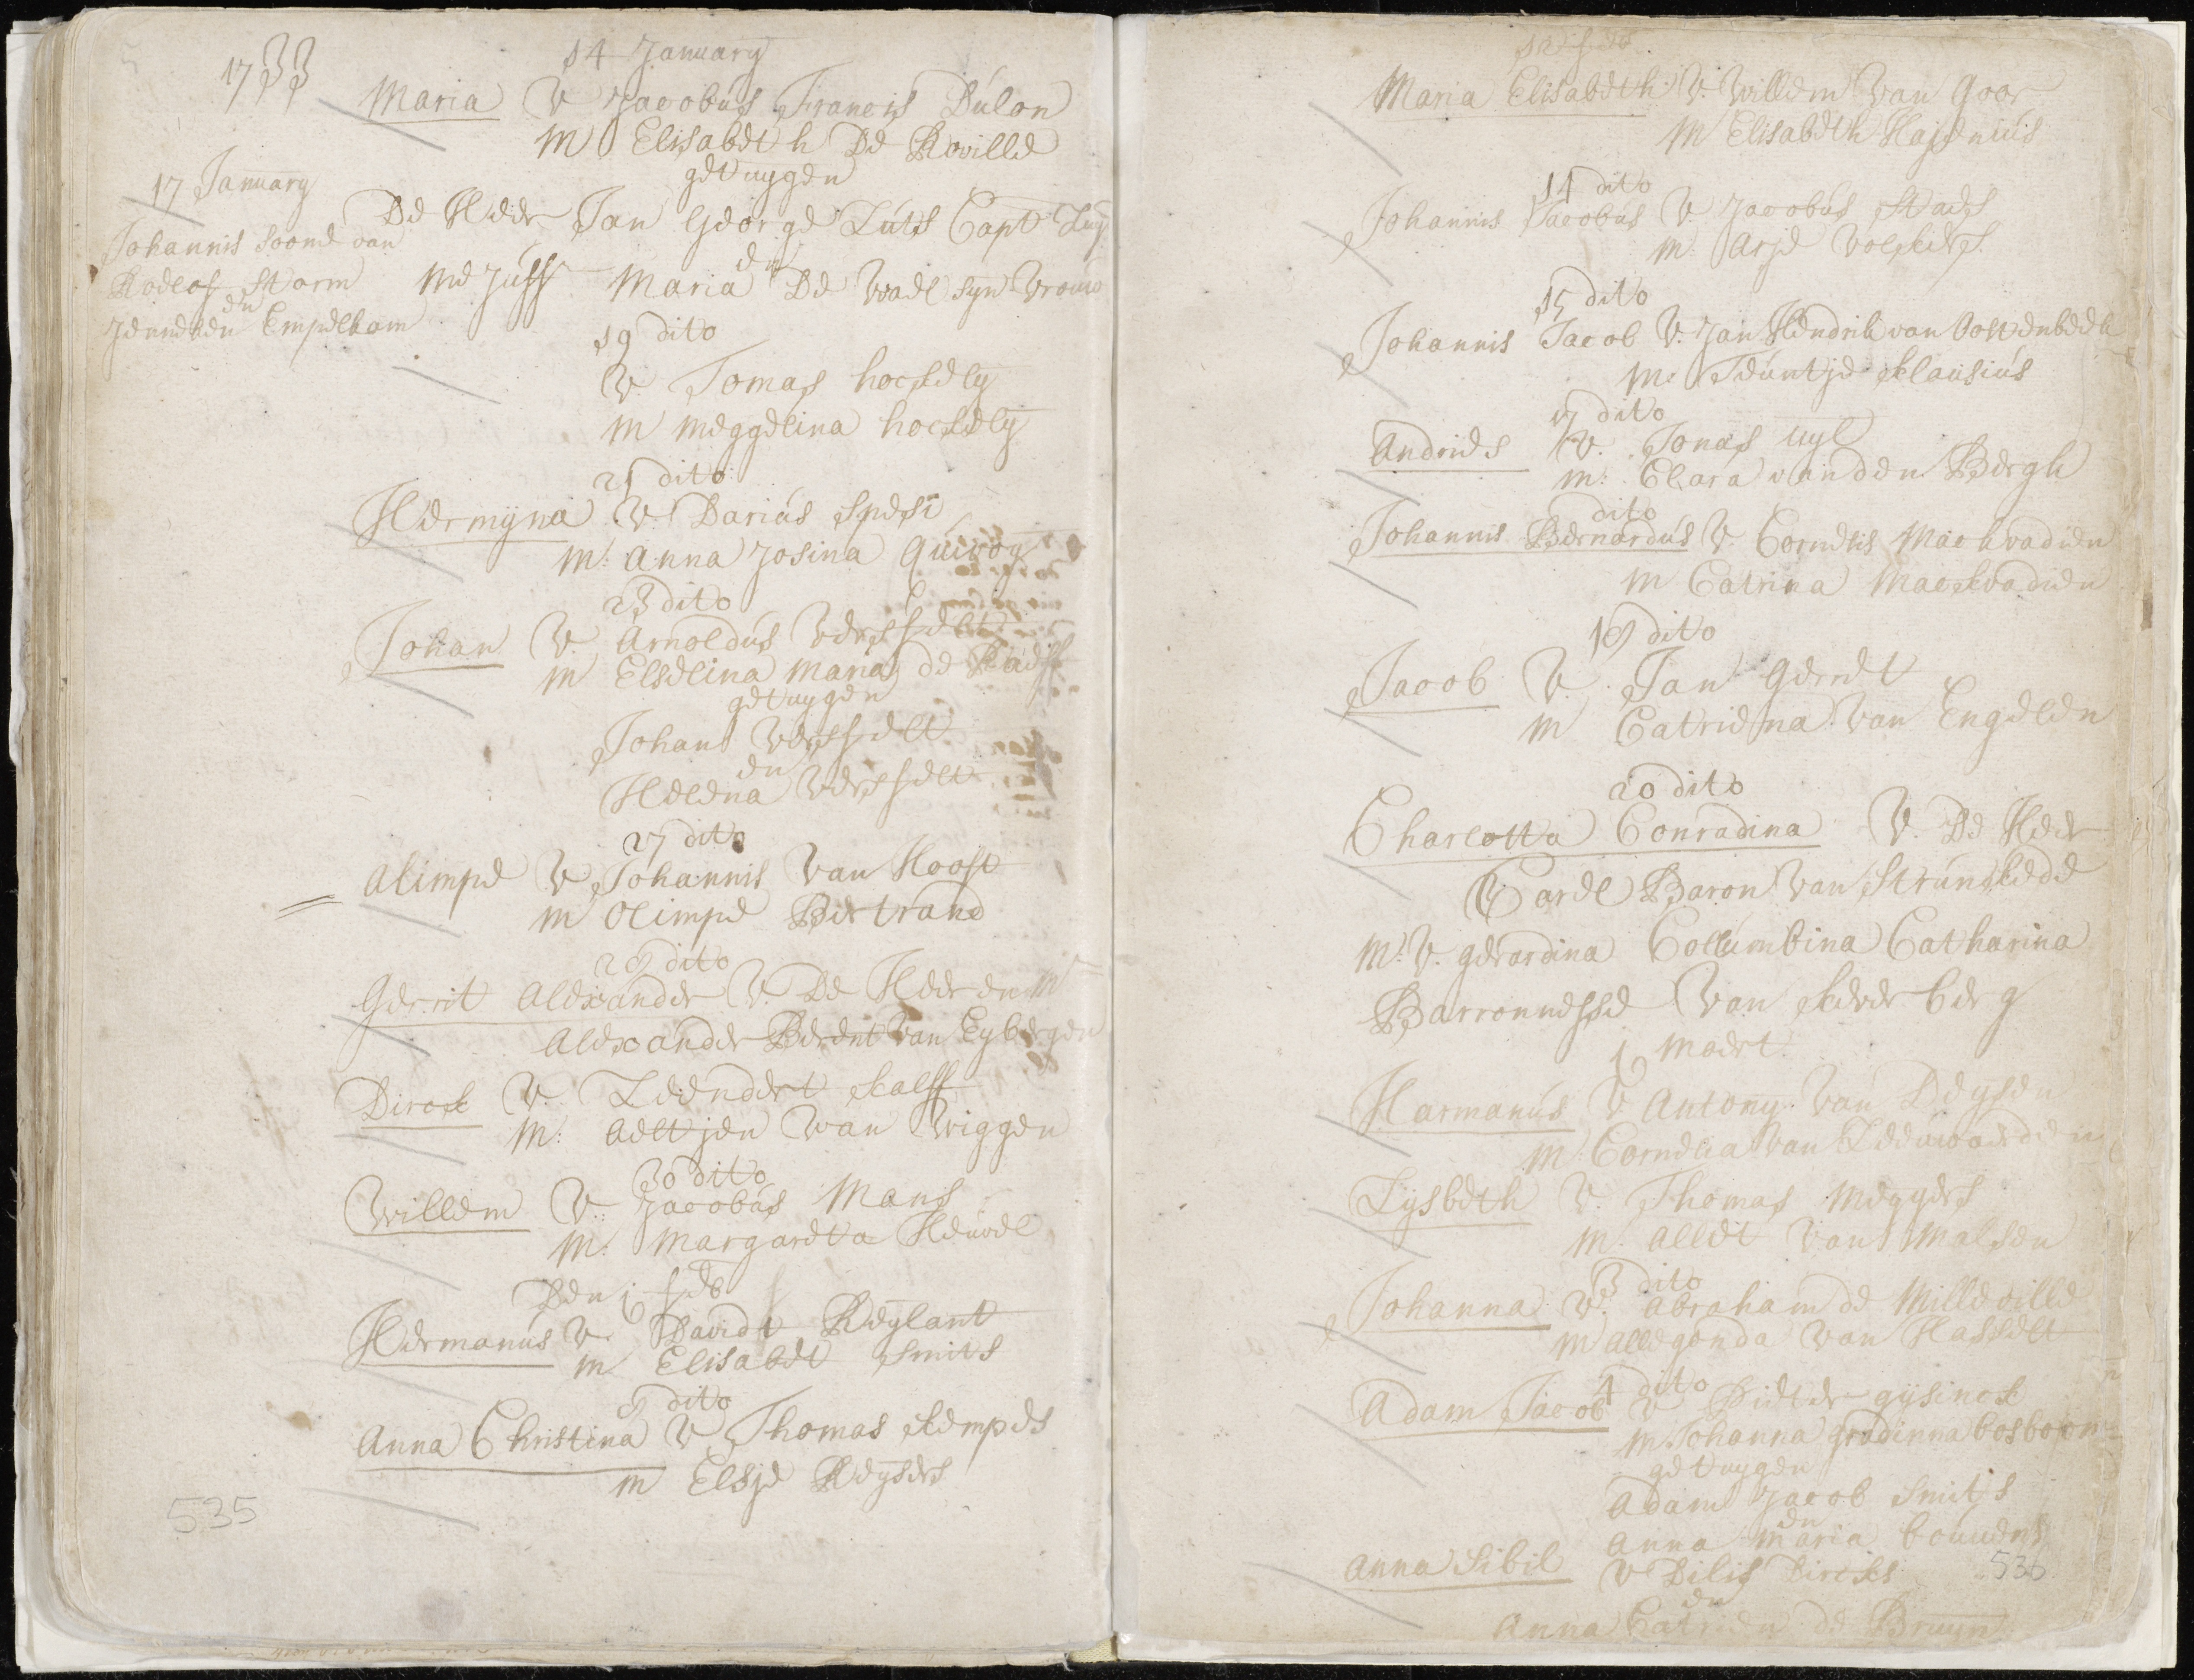 1733
14 January
Maria V Jacobus Francis Dulon
M Elisabet h De Roville
getuygen
De Heer Jan George Luts Capt Luy
en
Me Juff Maria De Wael syn Vrouw
17 January
Johannis soone van
Roelof Storm
en
Jenneken Empelkom
19 dito
V Tomas hoekely
M meggelina hoekely
21 dito
Hermyna V: Darius spesi
M: Anna Josina
23 dito
Johan V. Arnoldus Versselt
M Elselina Maria de Raeff
getuygen
Johan Versselt
en
Helena Versselt
27 dito
Alimpe V Johannis Van Hooft
M Olimpe Bertrand
29 dito
Gerrit Alexander V. De Heer en Mr
Alexander Berent Van Eybergen
Dirck V. Leendert Kalff
M: Aeltjen Van Wiggen
30 dito
Willem V: Jacobus Mans
M: Margareta Heuvel
Den 6 feb
Hermanus V. Davidt Reylant
M Elisabet Smits
9 dito
Anna Christina V Thomas Kempes
M Elsje Keysers
535
Maria Elisabeth V. Willem Van Goor
M Elisabeth Hajenius
14 dito
Johannis Jacobus V Jacobus Staes
M: Arje Volkers
15 dito
Johannis Jacob V. Jan Hendrik van Oostenbeek
M: Teuntje Klausius
17 dito
Andries V. Jonas Uyl
M: Clara vanden Bergh
dito
Johannis Bernardus V. Cornelis Mackvadien
M Catrina Mackvadien
19 dito
Jacob V. Jan Gerret
M Catriena Van Engelen
20 dito
Charlotta Conradina V. De Heer
Carel Baron Van Strunkede
M: V. gerardina Collumbina Catharina
Barronnesse Van Keverberg
1 Maert
Harmanus V Antony Van Deysen
M: Cornelia Van Leeuwaerden
Lysbeth V. Thomas Meggers
M. Allet Van Malsen
3 dito
Johanna V. Abraham de Milleville
M Allegonda Van Hasselt
4 dito
Adam Jacob V Pieter gysinck
M Johanna gradinna bosboom
getuygen
Adam Jacob Smits
en
Anna Maria bouwens
Anna Sibil V Dilis Dircks
536
en
Anna Catrien de Bruyn